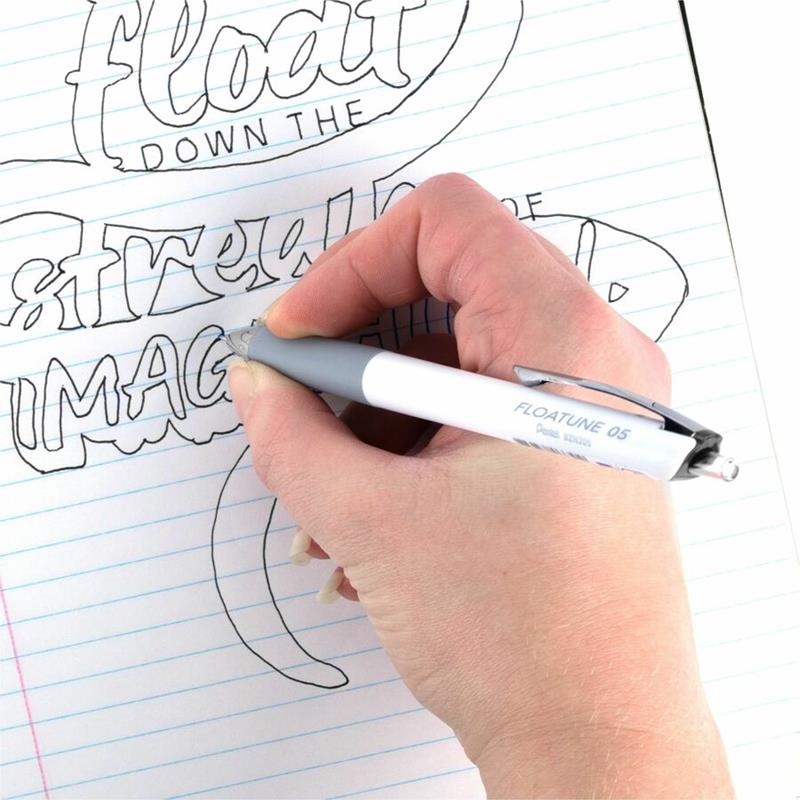 float
DOWN THE
Stream OF
IMAG
FLOATUNE 05
Pentel